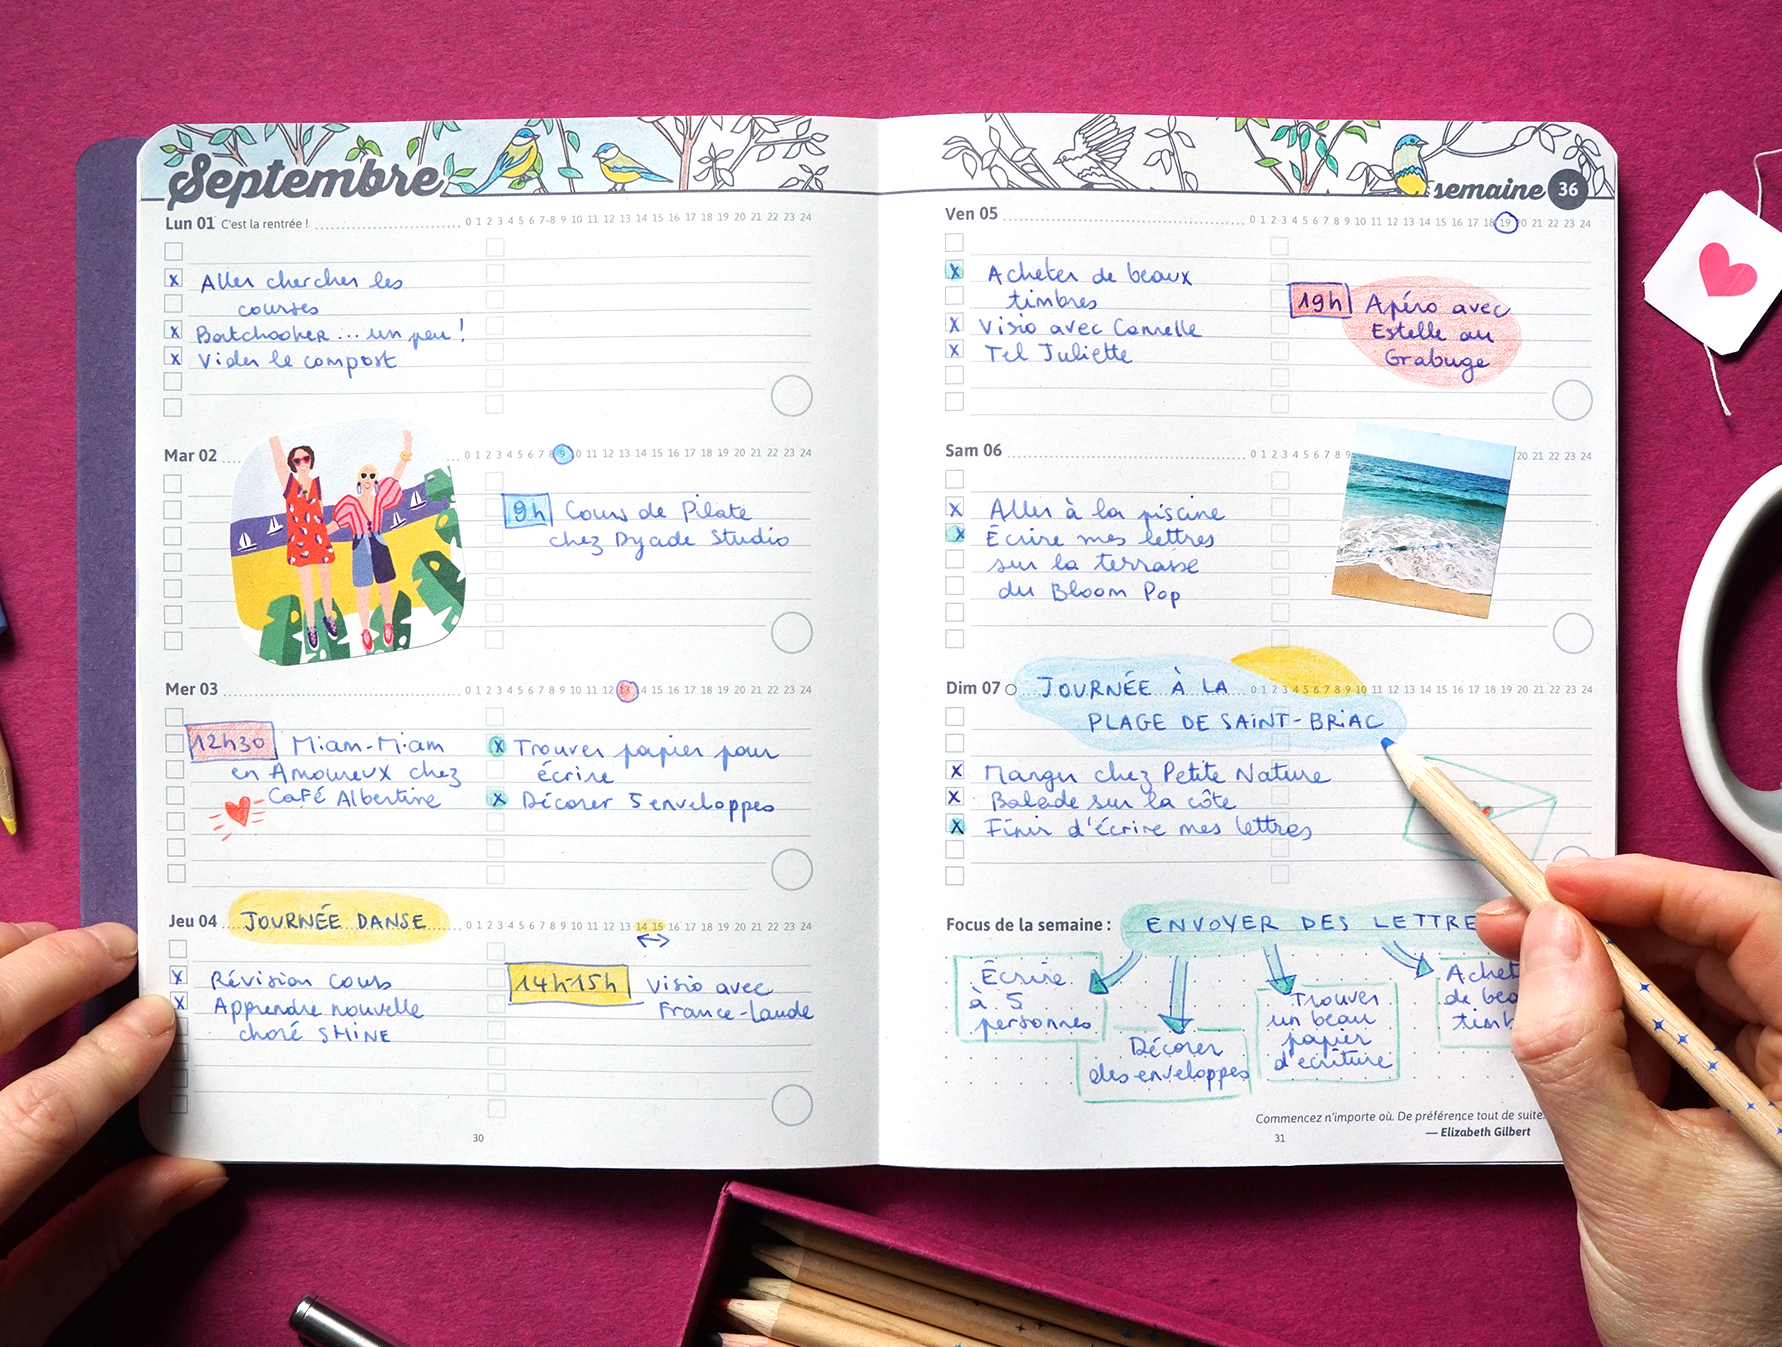 Septembre
Lun 01 C'est la rentrée !
0 1 2 3 4 5 6 7 8 9 10 11 12 13 14 15 16 17 18 19 20 21 22 23 24
x Aller chercher les
courses
x Batchcooker... un peu !
x Vider le compost
Mar 02
0 1 2 3 4 5 6 7 8 9 10 11 12 13 14 15 16 17 18 19 20 21 22 23 24
9h Cours de Pilate
chez Dyade Studio
Mer 03
0 1 2 3 4 5 6 7 8 9 10 11 12 13 14 15 16 17 18 19 20 21 22 23 24
12h30 Miam-Miam
en Amoureux chez
Café Albertine
x Trouver papier pour
écrire
x Décorer 5 enveloppes
Jeu 04 JOURNÉE DANSE
0 1 2 3 4 5 6 7 8 9 10 11 12 13 14 15 16 17 18 19 20 21 22 23 24
x Révision cours
x Apprendre nouvelle
choré SHINE
14h-15h Visio avec
France-Laude
30
semaine 36
Ven 05
0 1 2 3 4 5 6 7 8 9 10 11 12 13 14 15 16 17 18 19 20 21 22 23 24
x Acheter de beaux
timbres
x Visio avec Camelle
x Tel Juliette
19h Apéro avec
Estelle au
Grabuge
Sam 06
0 1 2 3 4 5 6 7 8 9 20 21 22 23 24
x Aller à la piscine
x Écrire mes lettres
sur la terrasse
du Bloom Pop
Dim 07 JOURNÉE À LA
0 1 2 3 4 5 6 7 8 9 10 11 12 13 14 15 16 17 18 19 20 21 22 23 24
PLAGE DE SAINT-BRIAC
x Manger chez Petite Nature
x Balade sur la côte
x Finir d'écrire mes lettres
Focus de la semaine : ENVOYER DES LETTRE
Écrire
à 5
personnes
Décorer
des enveloppes
Trouver
un beau
papier
d'écriture
Achet
de bea
timb
Commencez n'importe où. De préférence tout de suite.
— Elizabeth Gilbert
31